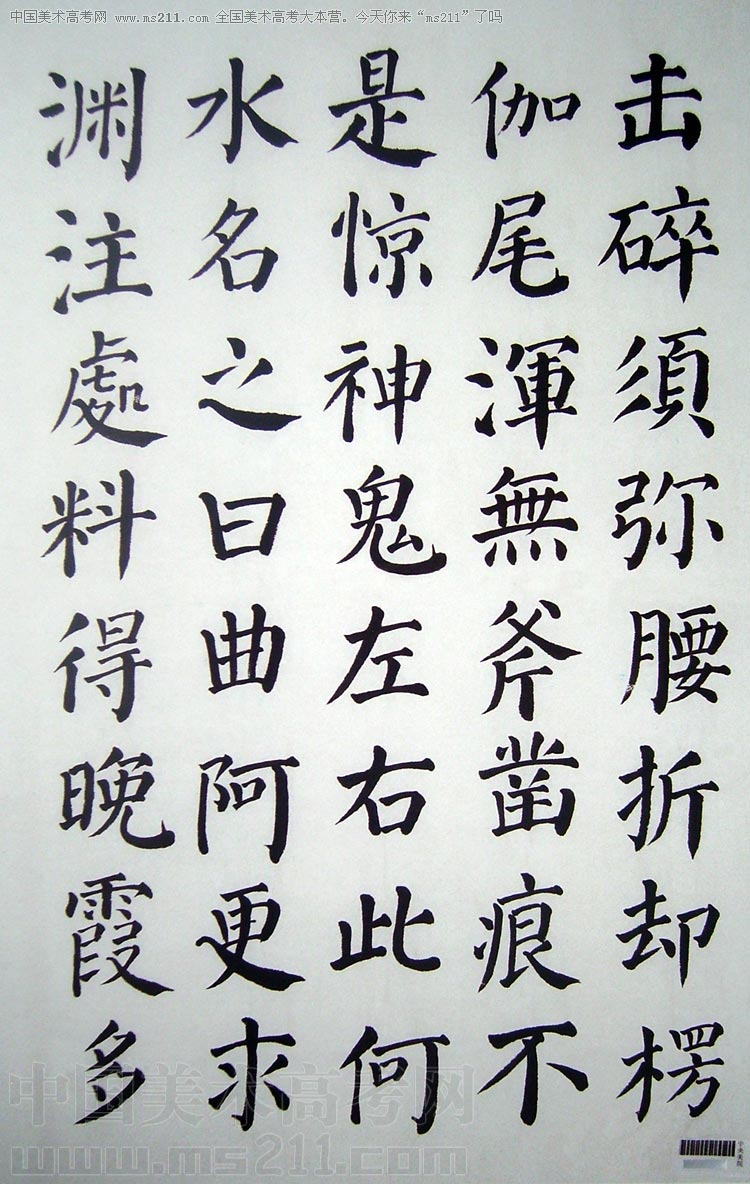 中国美术高考网 www.ms211.com 全国美术高考大本营。今天你来“ms211”了吗
击碎须弥腰折却楞
伽尾渾無斧凿痕不
是惊神鬼左右此何
水名之曰曲阿更求
渊注處料得晚霞多
中国美术高考网
www.ms211.com